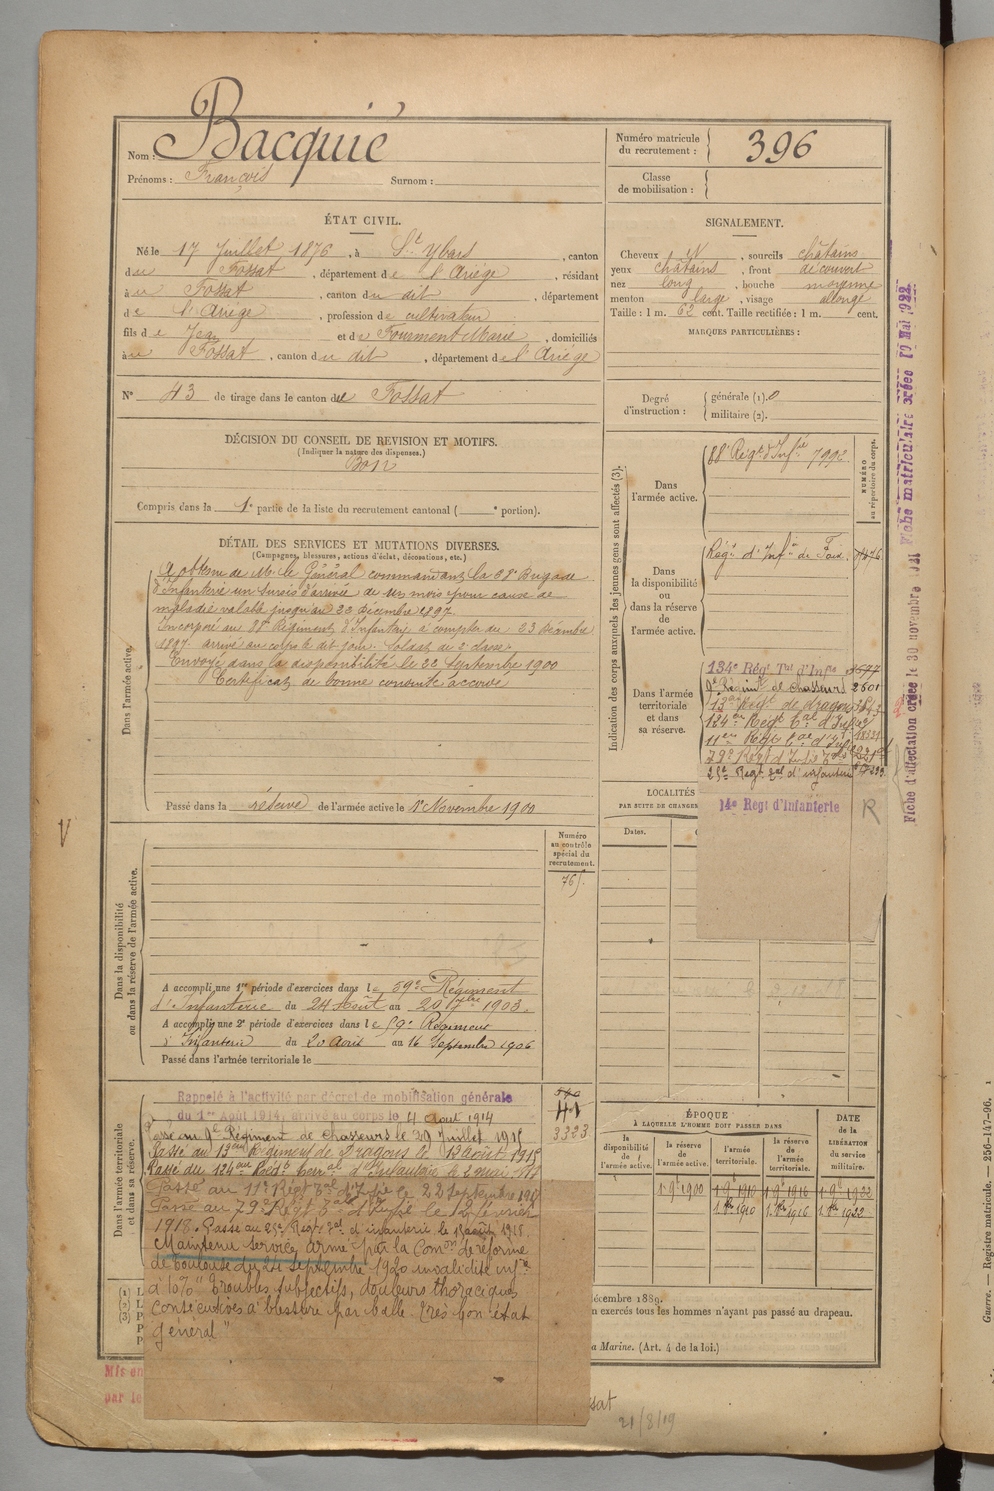 Nom : Bacquié
Prénoms : François Surnom :
Numéro matricule du recrutement : 396
Classe de mobilisation :
ÉTAT CIVIL.
Né le 17 Juillet 1876, à St Ybars, canton
du Fossat, département de l'Ariège, résidant
au Fossat, canton du dit, département
de l'Ariège, profession de cultivateur
fils de Jean et de Fourment Marie, domiciliés
au Fossat, canton du dit, département de l'Ariège
N° 43 de tirage dans le canton de Fossat
SIGNALEMENT.
Cheveux N, sourcils châtains
yeux châtains, front découvert
nez long, bouche moyenne
menton large, visage allongé
Taille : 1 m. 62 cent. Taille rectifiée : 1 m. cent.
MARQUES PARTICULIÈRES :
Degré d'instruction : générale (1). 0
militaire (2).
DÉCISION DU CONSEIL DE REVISION ET MOTIFS.
(Indiquer la nature des dispenses.)
Bon
Compris dans la 1e partie de la liste du recrutement cantonal ( e portion).
DÉTAIL DES SERVICES ET MUTATIONS DIVERSES.
(Campagnes, blessures, actions d'éclat, décorations, etc.)
Dans l'armée active.
A obtenu de M. le Général commandant la 68e Brigade
d'Infanterie un sursis d'arrivée de un mois pour cause de
maladie valable jusqu'au 23 Décembre 1897
Incorporé au 88e Régiment d'Infanterie à compter du 23 Décembre
1897 arrivé au corps le dit jour. Soldat de 2e classe.
Envoyé dans la disponibilité le 22 Septembre 1900
Certificat de bonne conduite accordé
Passé dans la réserve de l'armée active le 1er Novembre 1900
Indication des corps auxquels les jeunes gens sont affectés (3).
NUMÉRO au répertoire du corps.
Dans l'armée active.
88e Régt d'Infie 7992
Dans la disponibilité ou dans la réserve de l'armée active.
Régt d'Infie de Foix.
Dans l'armée territoriale et dans sa réserve.
134e Régt Tal d'Infie 3577
9e Régiment de chasseurs 2601
13e Régt de dragons
124e Régt Tal d'Infie
11e Régt Tal d'Infie
79e Régt d'Infie Tale
25e Regt Tal d'infanterie
14e Régt d'Infanterie R
Fiche d'affectation créée le 30 novembre 1921 Fiche matriculaire créée 10 Mai 1922
LOCALITÉS
PAR SUITE DE CHANGE
Dates.
Numéro au contrôle spécial du recrutement.
765
Dans la disponibilité ou dans la réserve de l'armée active.
A accompli une 1re période d'exercices dans le 59e Régiment
d'Infanterie du 24 Août au 20 7bre 1903.
A accompli une 2e période d'exercices dans le 59e Régiment
d'Infanterie du 20 Août au 16 Septembre 1906
Passé dans l'armée territoriale le
Dans l'armée territoriale et dans sa réserve.
Rappelé à l'activité par décret de mobilisation générale
du 1er Août 1914, arrivé au corps le 4 août 1914
Passé au 9e Régiment de Chasseurs le 29 Juillet 1915
3323
Passé au 13e Régiment de Dragons le 12 Août 1915
Passé du 124e Regt Terral d'Infanterie le 2 mai
Passé au 11e Régt Tal d'Infie le 22 Septembre 1917
Passé au 79e Régt Tal d'Infie le 12 février
1918. Passé au 25e Régt Tal d'infanterie le 15 août 1918.
Maintenu service armé par la Comon de réforme
de Toulouse du 24 septembre 1920 invalidité infre
à 10% "Troubles subjectifs, douleurs thoraciques
consécutives à blessure par balle. Très bon état
général"
ÉPOQUE
À LAQUELLE L'HOMME DOIT PASSER DANS
la disponibilité de l'armée active.
la réserve de l'armée active.
l'armée territoriale.
la réserve de l'armée territoriale.
DATE de la LIBÉRATION du service militaire.
1 9e 1900 1 9e 1910 1 9e 1916 1 9e 1922
1 8bre 1910 1 8bre 1916 1 8bre 1922
décembre 1889.
n exercés tous les hommes n'ayant pas passé au drapeau.
a Marine. (Art. 4 de la loi.)
Mis en
par le
sat
21/8/19
V
Guerre. — Registre matricule. — 256-147-96.